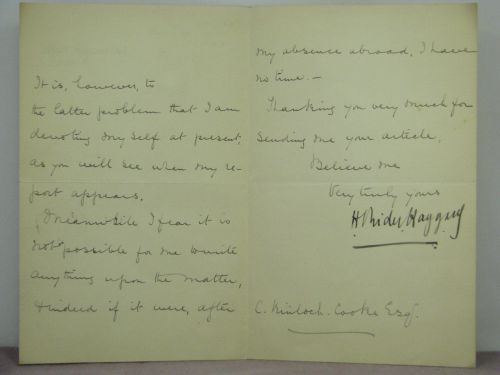 It is, however, to
the latter problem that I am
devoting myself at present,
as you will see when my re-
port appears.
Meanwhile I fear it is
not possible for me to write
anything upon the matter,
& indeed if it were, after
my absence abroad, I have
no time. —
Thanking you very much for
sending me your article,
Believe me
Very truly yours
H. Rider Haggard
C. Kinloch-Cooke Esq.